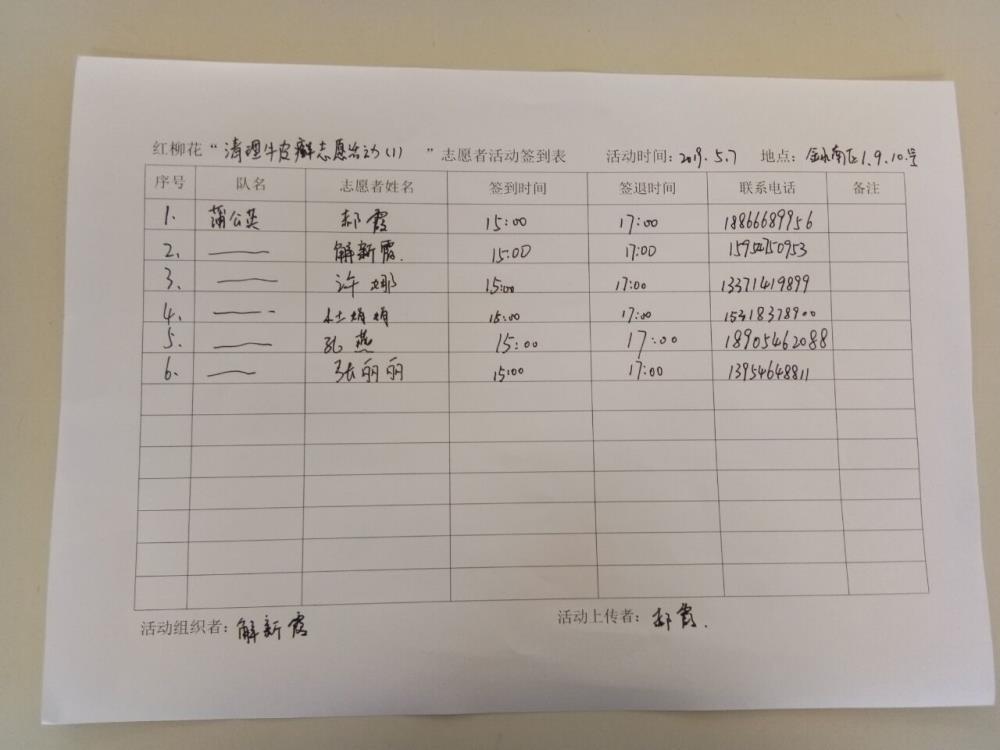 红柳花“清理牛皮癣志愿活动(1) ”志愿者活动签到表 活动时间:2019.5.7 地点:金水南区1.9.10.号
序号 队名 志愿者姓名 签到时间 签退时间 联系电话 备注
1. 蒲公英 郝霞 15:00 17:00 18866689956
2. —— 解新霞. 15:00 17:00 15952750953
3. —— 许娜 15:00 17:00 13371419899
4. —— 杜娟娟 15:00 17:00 15318378900
5. —— 孔燕 15:00 17:00 18905462088
6. —— 张丽丽 15:00 17:00 13954648811
活动组织者:解新霞 活动上传者:郝霞.